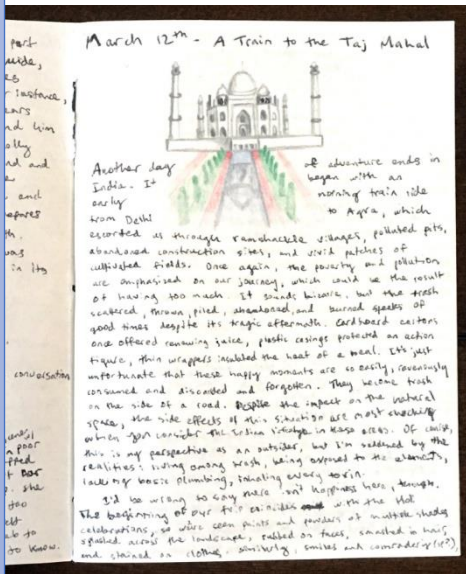 part
uide,
es
instance,
ears
nd him
olly
nd and
and
epares
th.
was
in its
conversation
poor
ffed
bar
she
too
elt
ab to
to know.
March 12th - A Train to the Taj Mahal
Another day of adventure ends in
India. It began with an
early morning train ride
from Delhi to Agra, which
escorted us through ramshackle villages, polluted pits,
abandoned construction sites, and vivid patches of
cultivated fields. Once again, the poverty and pollution
are emphasized on our journey, which could be the result
of having too much. It sounds bizarre, but the trash
scattered, thrown, piled, abandoned, and burned speaks of
good times despite its tragic aftermath. Cardboard cartons
once offered renewing juice, plastic casings protected an action
figure, thin wrappers insulated the heat of a meal. It's just
unfortunate that these happy moments are so easily, ravenously
consumed and discarded and forgotten. They become trash
on the side of a road. Despite the impact on the natural
space, the side effects of this situation are most
when you consider the Indian in these areas. Of course,
this is my perspective as an outsider, but I'm saddened by the
realities: living among trash, being exposed to the elements,
lacking basic plumbing, inhaling every toxin.
I'd be wrong to say there isn't happiness here, though.
The beginning of our trip coincides with the Holi
celebrations, so we've seen paints and powders of multiple shades
splashed across the landscape, rubbed on faces, smashed in hair,
and stained on clothes. Similarly, smiles and comradery(sp?)